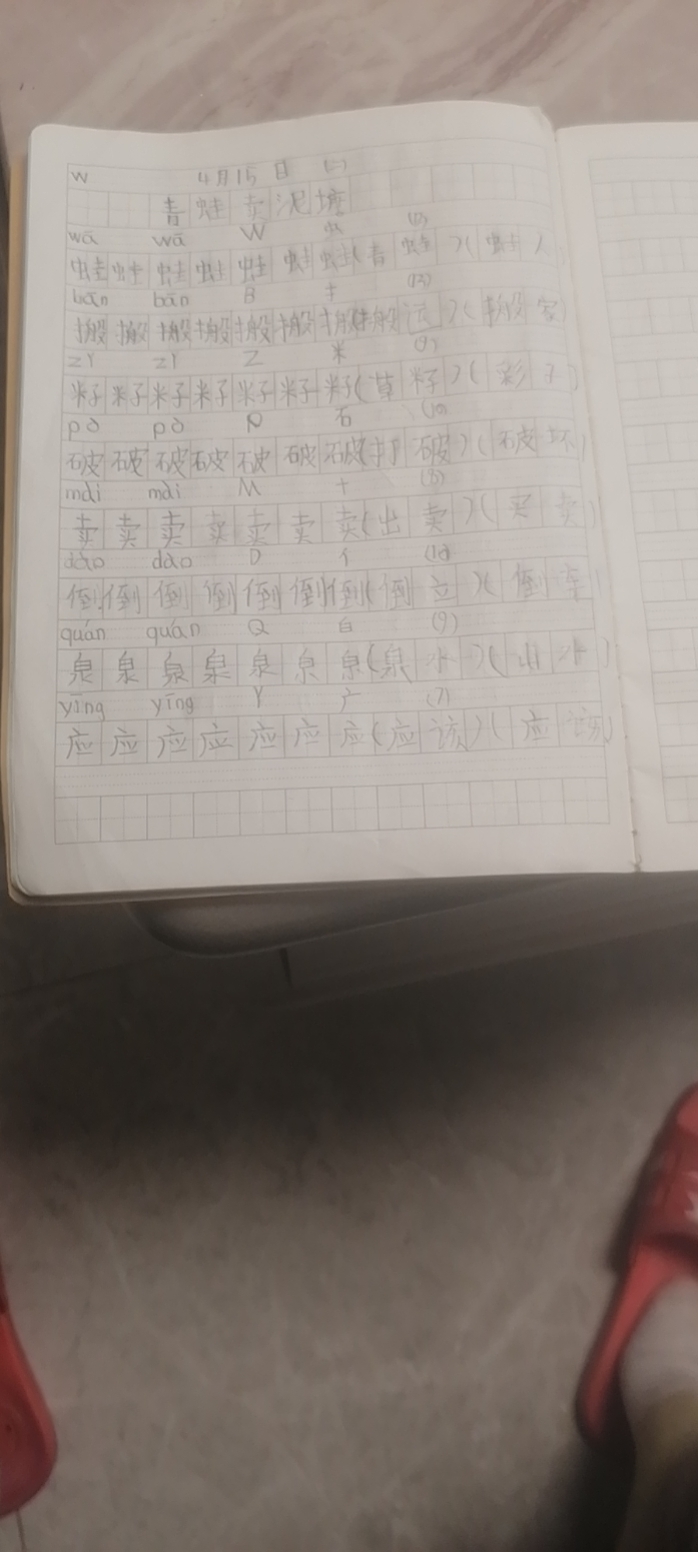 W 4月15日 (二)
青蛙卖泥塘
wā wā W 虫 (12)
蛙 蛙 蛙 蛙 蛙 蛙 蛙 (青蛙) (蛙)
bān bān B 扌 (13)
搬 搬 搬 搬 搬 搬 搬 (搬运) (搬家)
zǐ zǐ Z 米 (9)
籽 籽 籽 籽 籽 籽 籽 (草籽) (彩)
pò pò P 石 (10)
破 破 破 破 破 破 破 (打破) (破坏)
mài mài M 十 (8)
卖 卖 卖 卖 卖 卖 卖 (出卖) (买卖)
dào dào D 亻 (10)
倒 倒 倒 倒 倒 倒 倒 (倒立) (倒车)
quán quán Q 白 (9)
泉 泉 泉 泉 泉 泉 泉 (泉水) (山水)
yīng yīng Y 广 (7)
应 应 应 应 应 应 应 (应该) (应该)